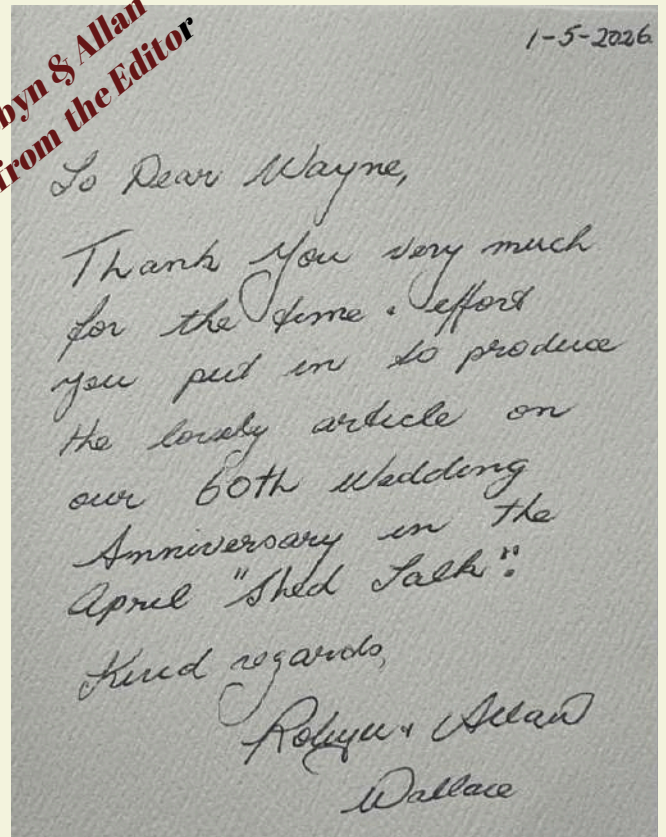 byn & Allan
from the Editor
1-5-2026
To Dear Wayne,
Thank You very much
for the time & effort
you put in to produce
the lovely article on
our 60th Wedding
Anniversary in the
April "Shed Talk".
Kind regards,
Robyn & Allan
Wallace